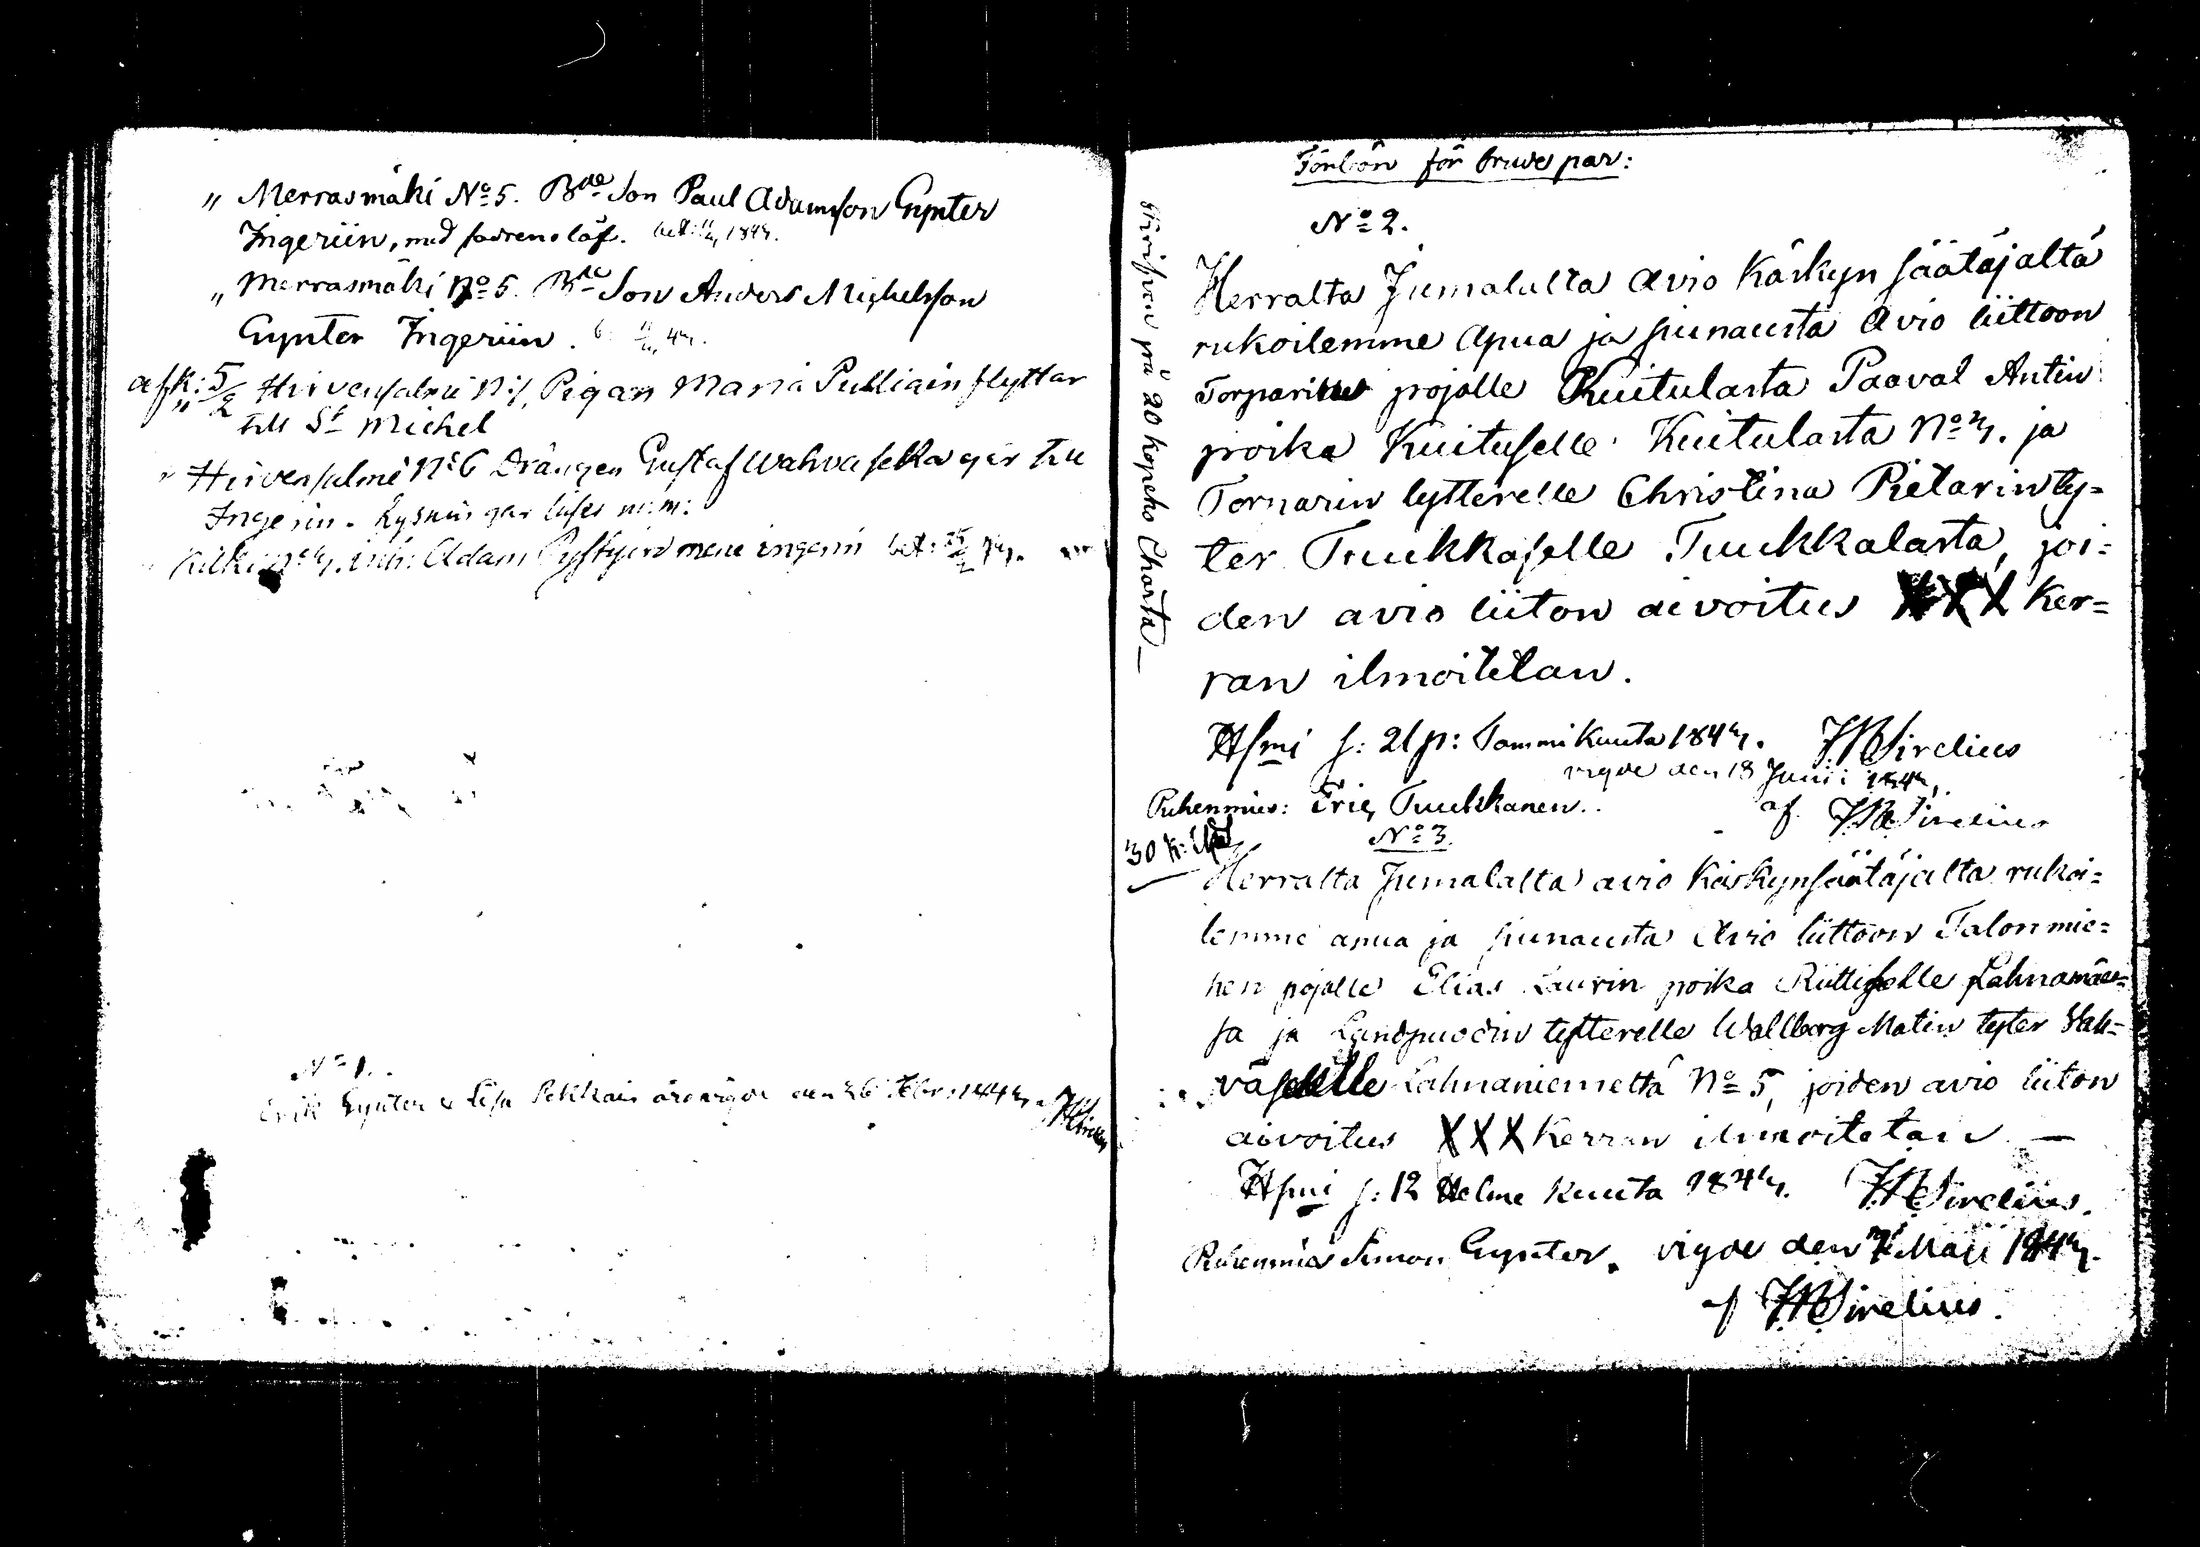 " Merrasmäki No 5. Bde Son Paul Adamsson Gynter
Ingeriin, med
" Merrasmäki No 5. Bde Son Anders Michelsson
Gynter Ingeriin.
afk: 5/2 Hirvensalmi No 1, Pigan Maria Pulliain flyttar
till St Michel
" Hirvensalmi No 6 Drängen Gustaf Wahvaselka går till
Ingerin.
Adam mene ingerin
No 1.
Erik Gynter & Lisa Pekkain äro vigde den 26 Febr: 1844 HBSirelius
Skrifven på 20 kopeks Charta
Förbön för brudepar:
No 2.
Herralta Jumalalta avio Käskyn säätäjältä
rukoilemme apua ja siunausta avio liittoon
Torparin pojalle Kuitulasta Paaval Antin
poika Kuituselle Kuitulasta No 4. ja
Torparin tytterelle Christina Pietarin ty=
ter Tuukkaselle Tuukkalasta, joi=
den avio liiton aivoitus XXX Ker=
ran ilmoitetan.
Hsmi s: 21 p: Tammi Kuuta 1844. HBSirelius
vigde den 18 Junii 1844,
Puhemies: Eric Tuukkanen.
af HBSirelius
No 3.
30 k:
Herralta Jumalalta avio Käskynsäätäjälta rukoi=
lemme apua ja siunausta Avio liittoon Talon mie=
hen pojalle Elias Laurin poika Riittiselle Lahnamäes=
sä ja Landpuodin tytterelle Wallborg Matin tyter Vah=
väselle Lahnaniemeltä No 5, joiden avio liiton
aivoitus XXX Kerran ilmoitetan —
Hsmi s: 12 Helme Kuuta 1844. HBSirelius.
Puhemies Simon Gynter. vigde den 7 Maii 1844.
af HBSirelius.